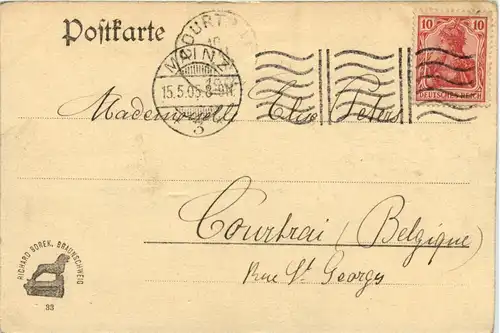 Postkarte
COURT
MAINZ
15.5.05.8-9N
3
10 10
DEUTSCHES REICH
Mademoiselle Elise Peters
Courtrai (Belgique)
Rue St Georges
RICHARD BOREK, BRAUNSCHWEIG
33